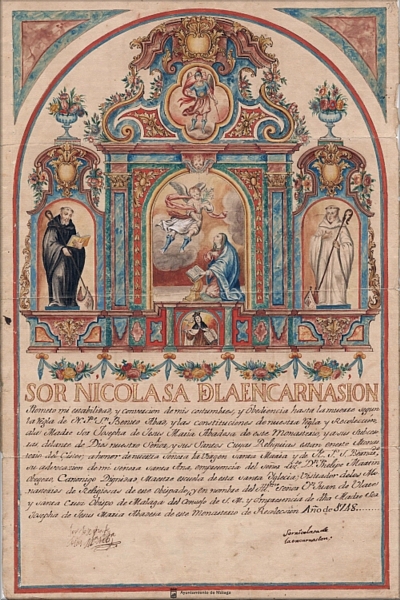 SOR NICOLASA DLAENCARNASION
Prometo mi estabilidad, y conversion de mis costumbres, y Obediencia hasta la muerte segun
la Regla de N. P. Sn. Benito Abad, y las constituciones de nuestra Regla y Recoleccion,
a la Madre Sor Josepha de Jesus Maria Abadesa de este Monasterio, y a sus
delante de Dios nuestro Señor, y sus Santos, Cuyas Reliquias estan en este
del Cister; a honor de nuestra Señora la Virgen Santa Maria y de N. P. S. Benito,
Su advocacion de mi Señora Santa Ana, en presencia del Señor Dn. Phelipe
Canonigo Dignidad, Maestre escuela de esta Santa Iglesia; Visitador de los
de Religiosas de este obispado, y en nombre del Sr. Dn. Juan de
y Santa Cruz Obispo de Malaga del Consejo de S. M. y en presencia de la Madre Sor
Josepha de Jesus Maria Abadesa de este Monasterio de Recoleccion Año de 1748
Sor nicolasa de
la encarnasion
Ayuntamiento de Málaga